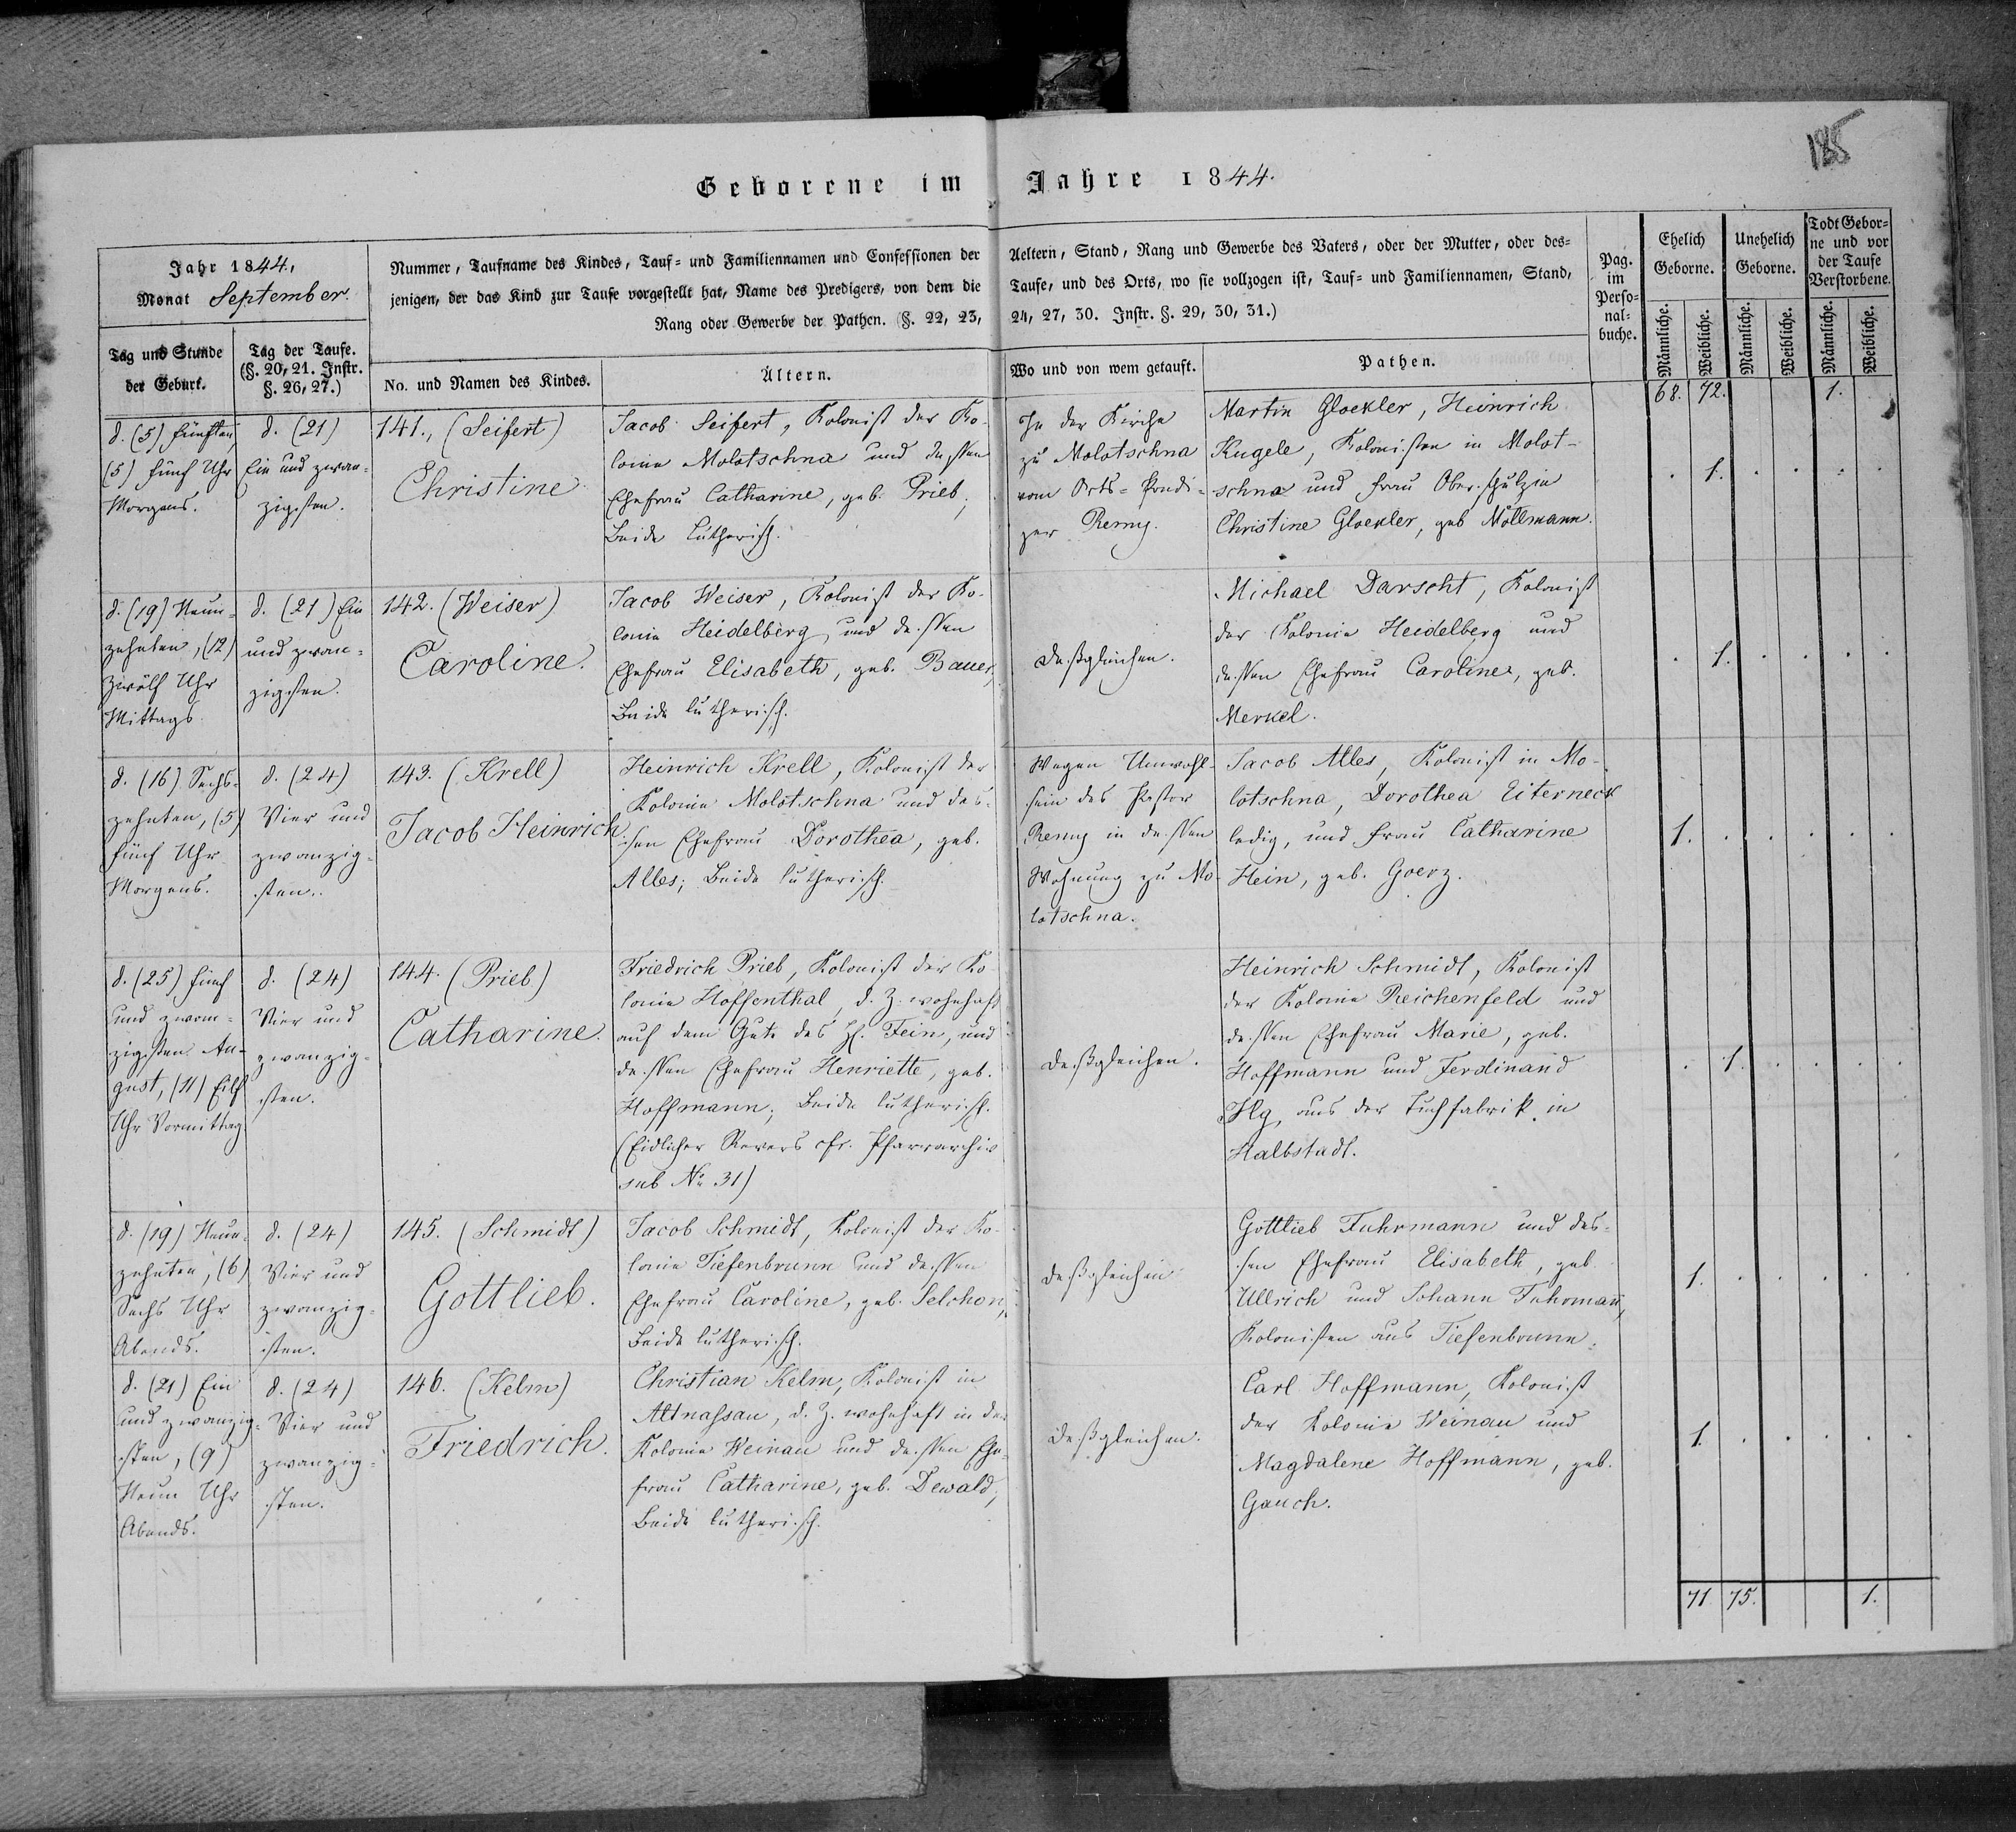 185
Geborene im Jahre 1844.
Jahr 1844,
Monat September.
Nummer, Taufname des Kindes, Tauf= und Familiennamen und Confessionen der Aeltern, Stand, Rang und Gewerbe des Vaters, oder der Mutter, oder des=
jenigen, der das Kind zur Taufe vorgestellt hat, Name des Predigers, von dem die Taufe, und des Orts, wo sie vollzogen ist, Tauf= und Familiennamen, Stand,
Rang oder Gewerbe der Pathen. (§. 22, 23, 24, 27, 30. Instr. §. 29, 30, 31.)
Pag.
im
Perso=
nal=
buche.
Ehelich
Geborne.
Unehelich
Geborne.
Todt Gebor=
ne und vor
der Taufe
Verstorbene.
Männliche.
Weibliche.
Männliche.
Weibliche.
Männliche.
Weibliche.
Tag und Stunde
der Geburt.
Tag der Taufe.
(§. 20, 21. Instr.
§. 26, 27.)
No. und Namen des Kindes.
Ältern.
Wo und von wem getauft.
Pathen.
68. 72. 1.
d. (5) fünften,
(5) fünf Uhr
Morgens.
d. (21)
Ein und zwan-
zigsten.
141., (Seifert)
Christine
Jacob Seifert, Kolonist der Ko-
lonie Molotschna und dessen
Ehefrau Catharine, geb. Prieb,
Beide lutherisch.
In der Kirche
zu Molotschna
vom Orts=Predi-
ger Remy.
Martin Gloekler, Heinrich
Kugele, Kolonisten in Molot-
schna und Frau Oberschulzin
Christine Gloekler, geb Mollmann.
. 1. . . . .
d. (19) Neun-
zehnten, (12)
Zwölf Uhr
Mittags.
d. (21) Ein
und zwan-
zigsten.
142. (Weiser)
Caroline.
Jacob Weiser, Kolonist der Ko-
lonie Heidelberg, und dessen
Ehefrau Elisabeth, geb. Bauer,
Beide lutherisch.
Deßgleichen.
Michael Darscht, Kolonist
der Kolonie Heidelberg und
dessen Ehefrau Caroline, geb.
Merkel.
. 1. . . . .
d. (16) Sechs-
zehnten, (5)
fünf Uhr
Morgens.
d. (24)
Vier und
zwanzig-
sten.
143. (Krell)
Jacob Heinrich
Heinrich Krell, Kolonist der
Kolonie Molotschna und des-
sen Ehefrau Dorothea, geb.
Alles; Beide lutherisch.
Wegen Unwohl-
sein des Pastor
Remy in dessen
Wohnung zu Mo-
lotschna.
Jacob Alles, Kolonist in Mo-
lotschna, Dorothea Eiterneck
ledig, und Frau Catharine
Hein, geb. Goerz.
1. . . . . .
d. (25) fünf
und zwan-
zigsten Au-
gust, (11) Eilf
Uhr Vormittag
d. (24)
Vier und
zwanzig-
sten.
144. (Prieb)
Catharine.
Friedrich Prieb, Kolonist der Ko-
lonie Hoffenthal, d. Z. wohnhaft
auf dem Gute des H. Fein, und
dessen Ehefrau Henriette, geb.
Hoffmann; Beide lutherisch.
(Eidlicher Revers cfr. Pfarrarchiv
sub No 31)
Deßgleichen.
Heinrich Schmidt, Kolonist
der Kolonie Reichenfeld und
dessen Ehefrau Marie, geb.
Hoffmann und Ferdinand
Ilg, aus der Tuchfabrik in
Halbstadt.
. 1. . . . .
d. (19) Neun-
zehnten, (6)
Sechs Uhr
Abends.
d. (24)
Vier und
zwanzig-
sten.
145. (Schmidt)
Gottlieb.
Jacob Schmidt, Kolonist der Ko-
lonie Tiefenbrunn und dessen
Ehefrau Caroline, geb. Selchon;
Beide lutherisch.
Deßgleichen
Gottlieb Fuhrmann und des-
sen Ehefrau Elisabeth, geb.
Ullrich und Johann Fuhrman̄,
Kolonisten aus Tiefenbrunn.
1. . . . . .
d. (21) Ein
und zwanzig-
sten, (9)
Neun Uhr
Abends.
d. (24)
Vier und
zwanzig-
sten.
146. (Kelm)
Friedrich.
Christian Kelm, Kolonist in
Altnassau, d. Z. wohnhaft in der
Kolonie Weinau und dessen Ehe-
frau Catharine, geb. Dewald;
Beide lutherisch.
Deßgleichen.
Carl Hoffmann, Kolonist
der Kolonie Weinau und
Magdalene Hoffmann, geb.
Gauch.
1. . . . . .
71 75. 1.